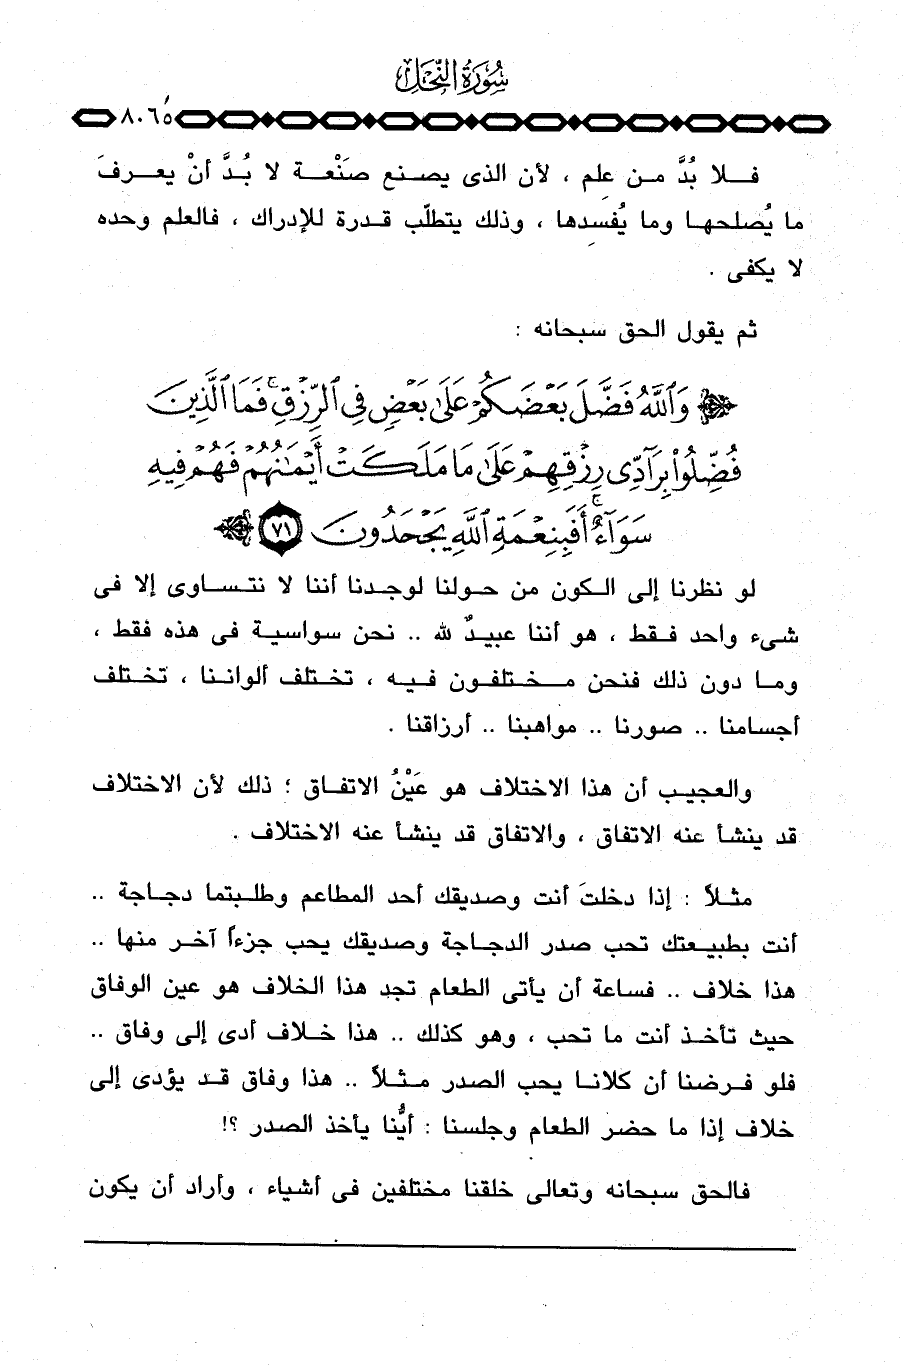 سُورَةُ النَّحْلِ
٨٠٦٥
فـلا بُدَّ مـن علم ، لأن الذى يصـنع صَنْعـة لا بُـدَّ أنْ يعـرفَ
ما يُصلحهـا وما يُفسدها ، وذلك يتطلَّب قـدرة للإدراك ، فالعلم وحده
لا يكفى .
ثم يقول الحق سبحانه :
وَٱللَّهُ فَضَّلَ بَعْضَكُمْ عَلَىٰ بَعْضٍ فِى ٱلرِّزْقِ ۚ فَمَا ٱلَّذِينَ
فُضِّلُوا۟ بِرَآدِّى رِزْقِهِمْ عَلَىٰ مَا مَلَكَتْ أَيْمَٰنُهُمْ فَهُمْ فِيهِ
سَوَآءٌ ۚ أَفَبِنِعْمَةِ ٱللَّهِ يَجْحَدُونَ ٧١
لو نظرنا إلى الـكون من حـولنا لوجـدنا أننا لا نتـسـاوى إلا فى
شىء واحد فـقط ، هو أننا عبيـدٌ لله .. نحن سواسيـة فى هذه فقط ،
ومـا دون ذلك فنحن مـختلفـون فـيـه ، تـختلف ألوانـنا ، تـختلف
أجسامنا .. صورنا .. مواهبنا .. أرزاقنا .
والعجيب أن هذا الاختلاف هو عَيْنُ الاتفـاق ؛ ذلك لأن الاختلاف
قد ينشأ عنه الاتفاق ، والاتفاق قد ينشأ عنه الاختلاف .
مثـلاً : إذا دخلتَ أنت وصديقك أحد المطاعم وطلـبتما دجـاجة ..
أنت بطبيـعتك تحب صدر الدجـاجة وصديقك يحب جزءاً آخـر منها ..
هذا خلاف .. فساعة أن يأتى الطعام تجد هذا الخلاف هو عين الوفاق
حيث تأخـذ أنت ما تحب ، وهو كذلك .. هذا خـلاف أدى إلى وفاق ..
فلو فـرضنا أن كلانـا يحب الصدر مـثـلاً .. هذا وفاق قـد يؤدى إلى
خلاف إذا ما حضر الطعام وجلسنا : أيُّنا يأخذ الصدر ؟!
فالحق سبحانه وتعالى خلقنا مختلفين فى أشياء ، وأراد أن يكون